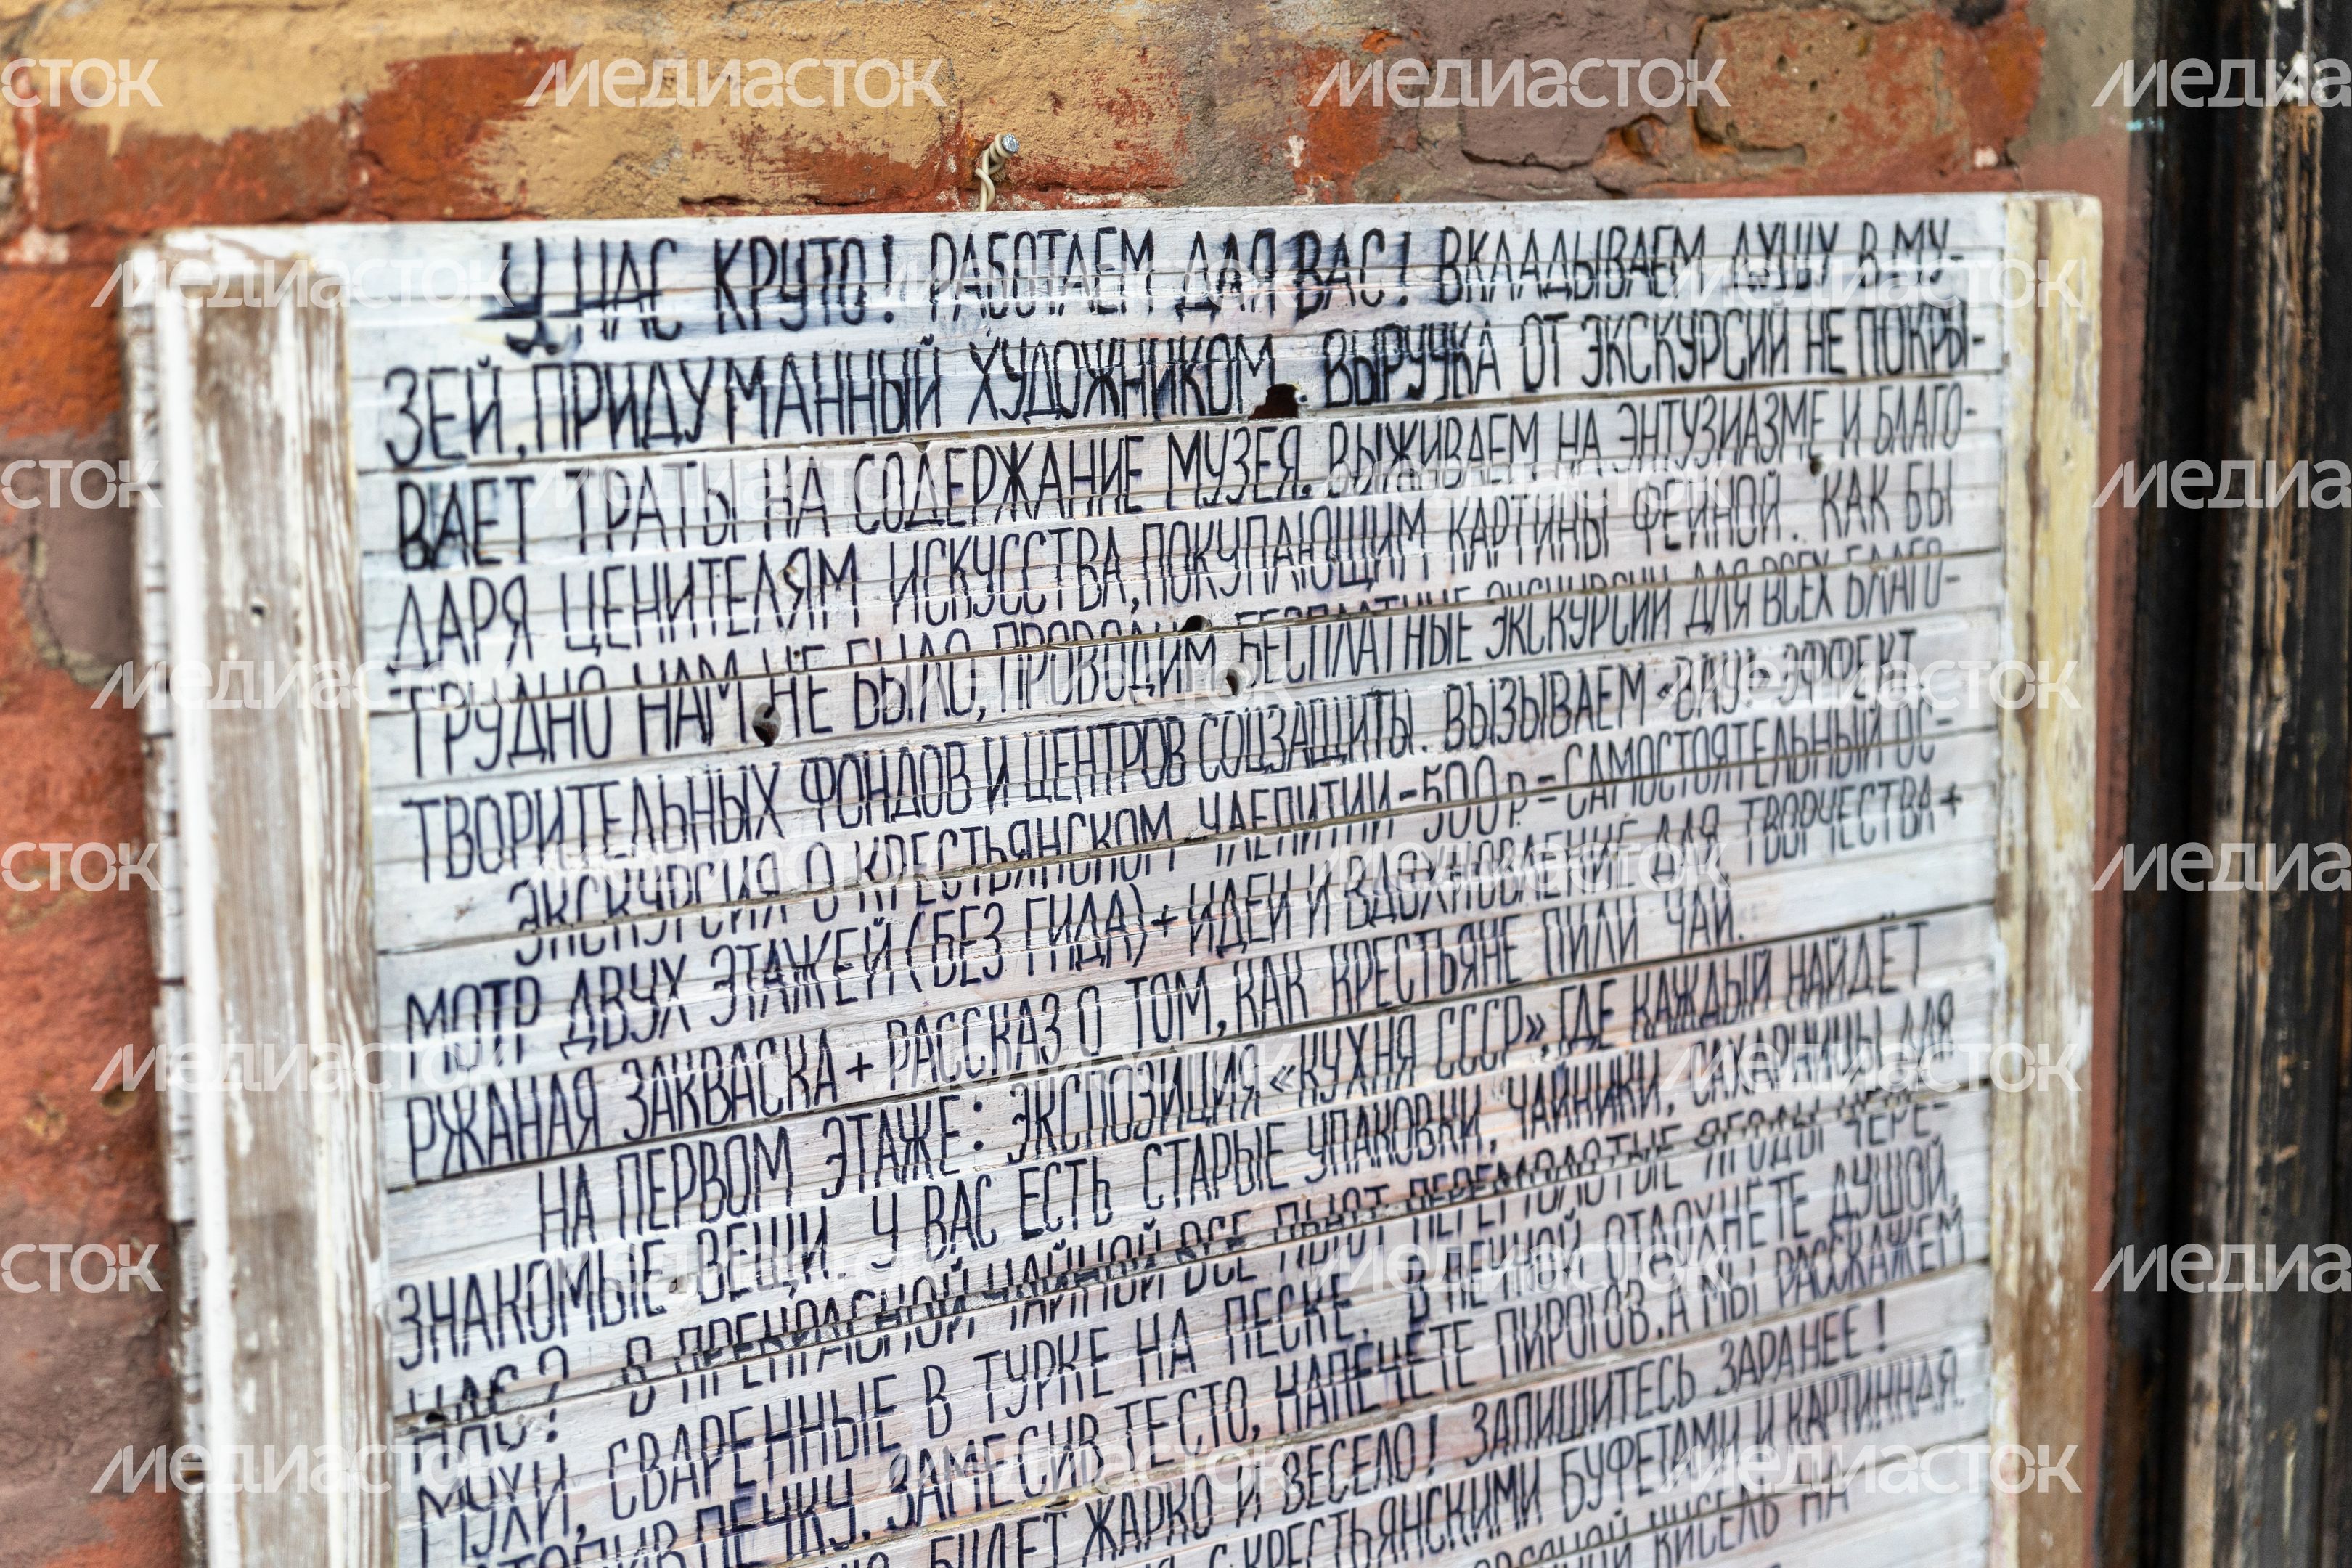 У НАС КРУТО! РАБОТАЕМ ДЛЯ ВАС! ВКЛАДЫВАЕМ ДУШУ В МУ-
ЗЕЙ, ПРИДУМАННЫЙ ХУДОЖНИКОМ. ВЫРУЧКА ОТ ЭКСКУРСИЙ НЕ ПОКРЫ-
ВАЕТ ТРАТЫ НА СОДЕРЖАНИЕ МУЗЕЯ. ВЫЖИВАЕМ НА ЭНТУЗИАЗМЕ И БЛАГО-
ДАРЯ ЦЕНИТЕЛЯМ ИСКУССТВА, ПОКУПАЮЩИМ КАРТИНЫ ФЕЙНОЙ. КАК БЫ
ТРУДНО НАМ НЕ БЫЛО, ПРОВОДИМ БЕСПЛАТНЫЕ ЭКСКУРСИИ ДЛЯ ВСЕХ БЛАГО-
ТВОРИТЕЛЬНЫХ ФОНДОВ И ЦЕНТРОВ СОЦЗАЩИТЫ. ВЫЗЫВАЕМ «ВАУ» ЭФФЕКТ.
ЭКСКУРСИЯ О КРЕСТЬЯНСКОМ ЧАЕПИТИИ - 500 Р. = САМОСТОЯТЕЛЬНЫЙ ОС-
МОТР ДВУХ ЭТАЖЕЙ (БЕЗ ГИДА) + ИДЕИ И ВДОХНОВЕНИЕ ДЛЯ ТВОРЧЕСТВА +
РЖАНАЯ ЗАКВАСКА + РАССКАЗ О ТОМ, КАК КРЕСТЬЯНЕ ПИЛИ ЧАЙ.
НА ПЕРВОМ ЭТАЖЕ: ЭКСПОЗИЦИЯ «КУХНЯ СССР», ГДЕ КАЖДЫЙ НАЙДЁТ
ЗНАКОМЫЕ ВЕЩИ. У ВАС ЕСТЬ СТАРЫЕ УПАКОВКИ, ЧАЙНИКИ, САХАРНИЦЫ ДЛЯ
НАС? В ПРЕКРАСНОЙ ЧАЙНОЙ ВСЕ ПЬЮТ ПЕРЕМОЛОТЫЕ ЯГОДЫ ЧЕРЕ-
МУХИ, СВАРЕННЫЕ В ТУРКЕ НА ПЕСКЕ. В ПЕЧНОЙ ОТДОХНЁТЕ ДУШОЙ,
ПЕЧКУ, ЗАМЕСИВ ТЕСТО, НАПЕЧЁТЕ ПИРОГОВ, А МЫ РАССКАЖЕМ
БУДЕТ ЖАРКО И ВЕСЕЛО! ЗАПИШИТЕСЬ ЗАРАНЕЕ!
С КРЕСТЬЯНСКИМИ БУФЕТАМИ И КАРТИННАЯ.
КИСЕЛЬ НА
МЕДИАСТОК